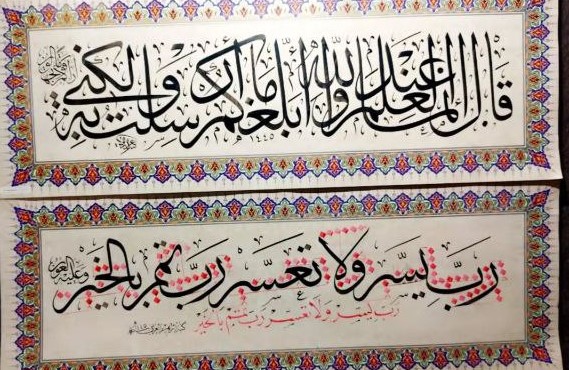 قَالَ إِنَّمَا الْعِلْمُ عِنْدَ اللَّهِ وَأُبَلِّغُكُمْ مَا أُرْسِلْتُ بِهِ وَلَكِنِّي
١٤٤٥
رَبِّ يَسِّرْ وَلَا تُعَسِّرْ رَبِّ تَمِّمْ بِالْخَيْرِ
رَبِّ يَسِّرْ وَلَا تُعَسِّرْ رَبِّ تَمِّمْ بِالْخَيْرِ